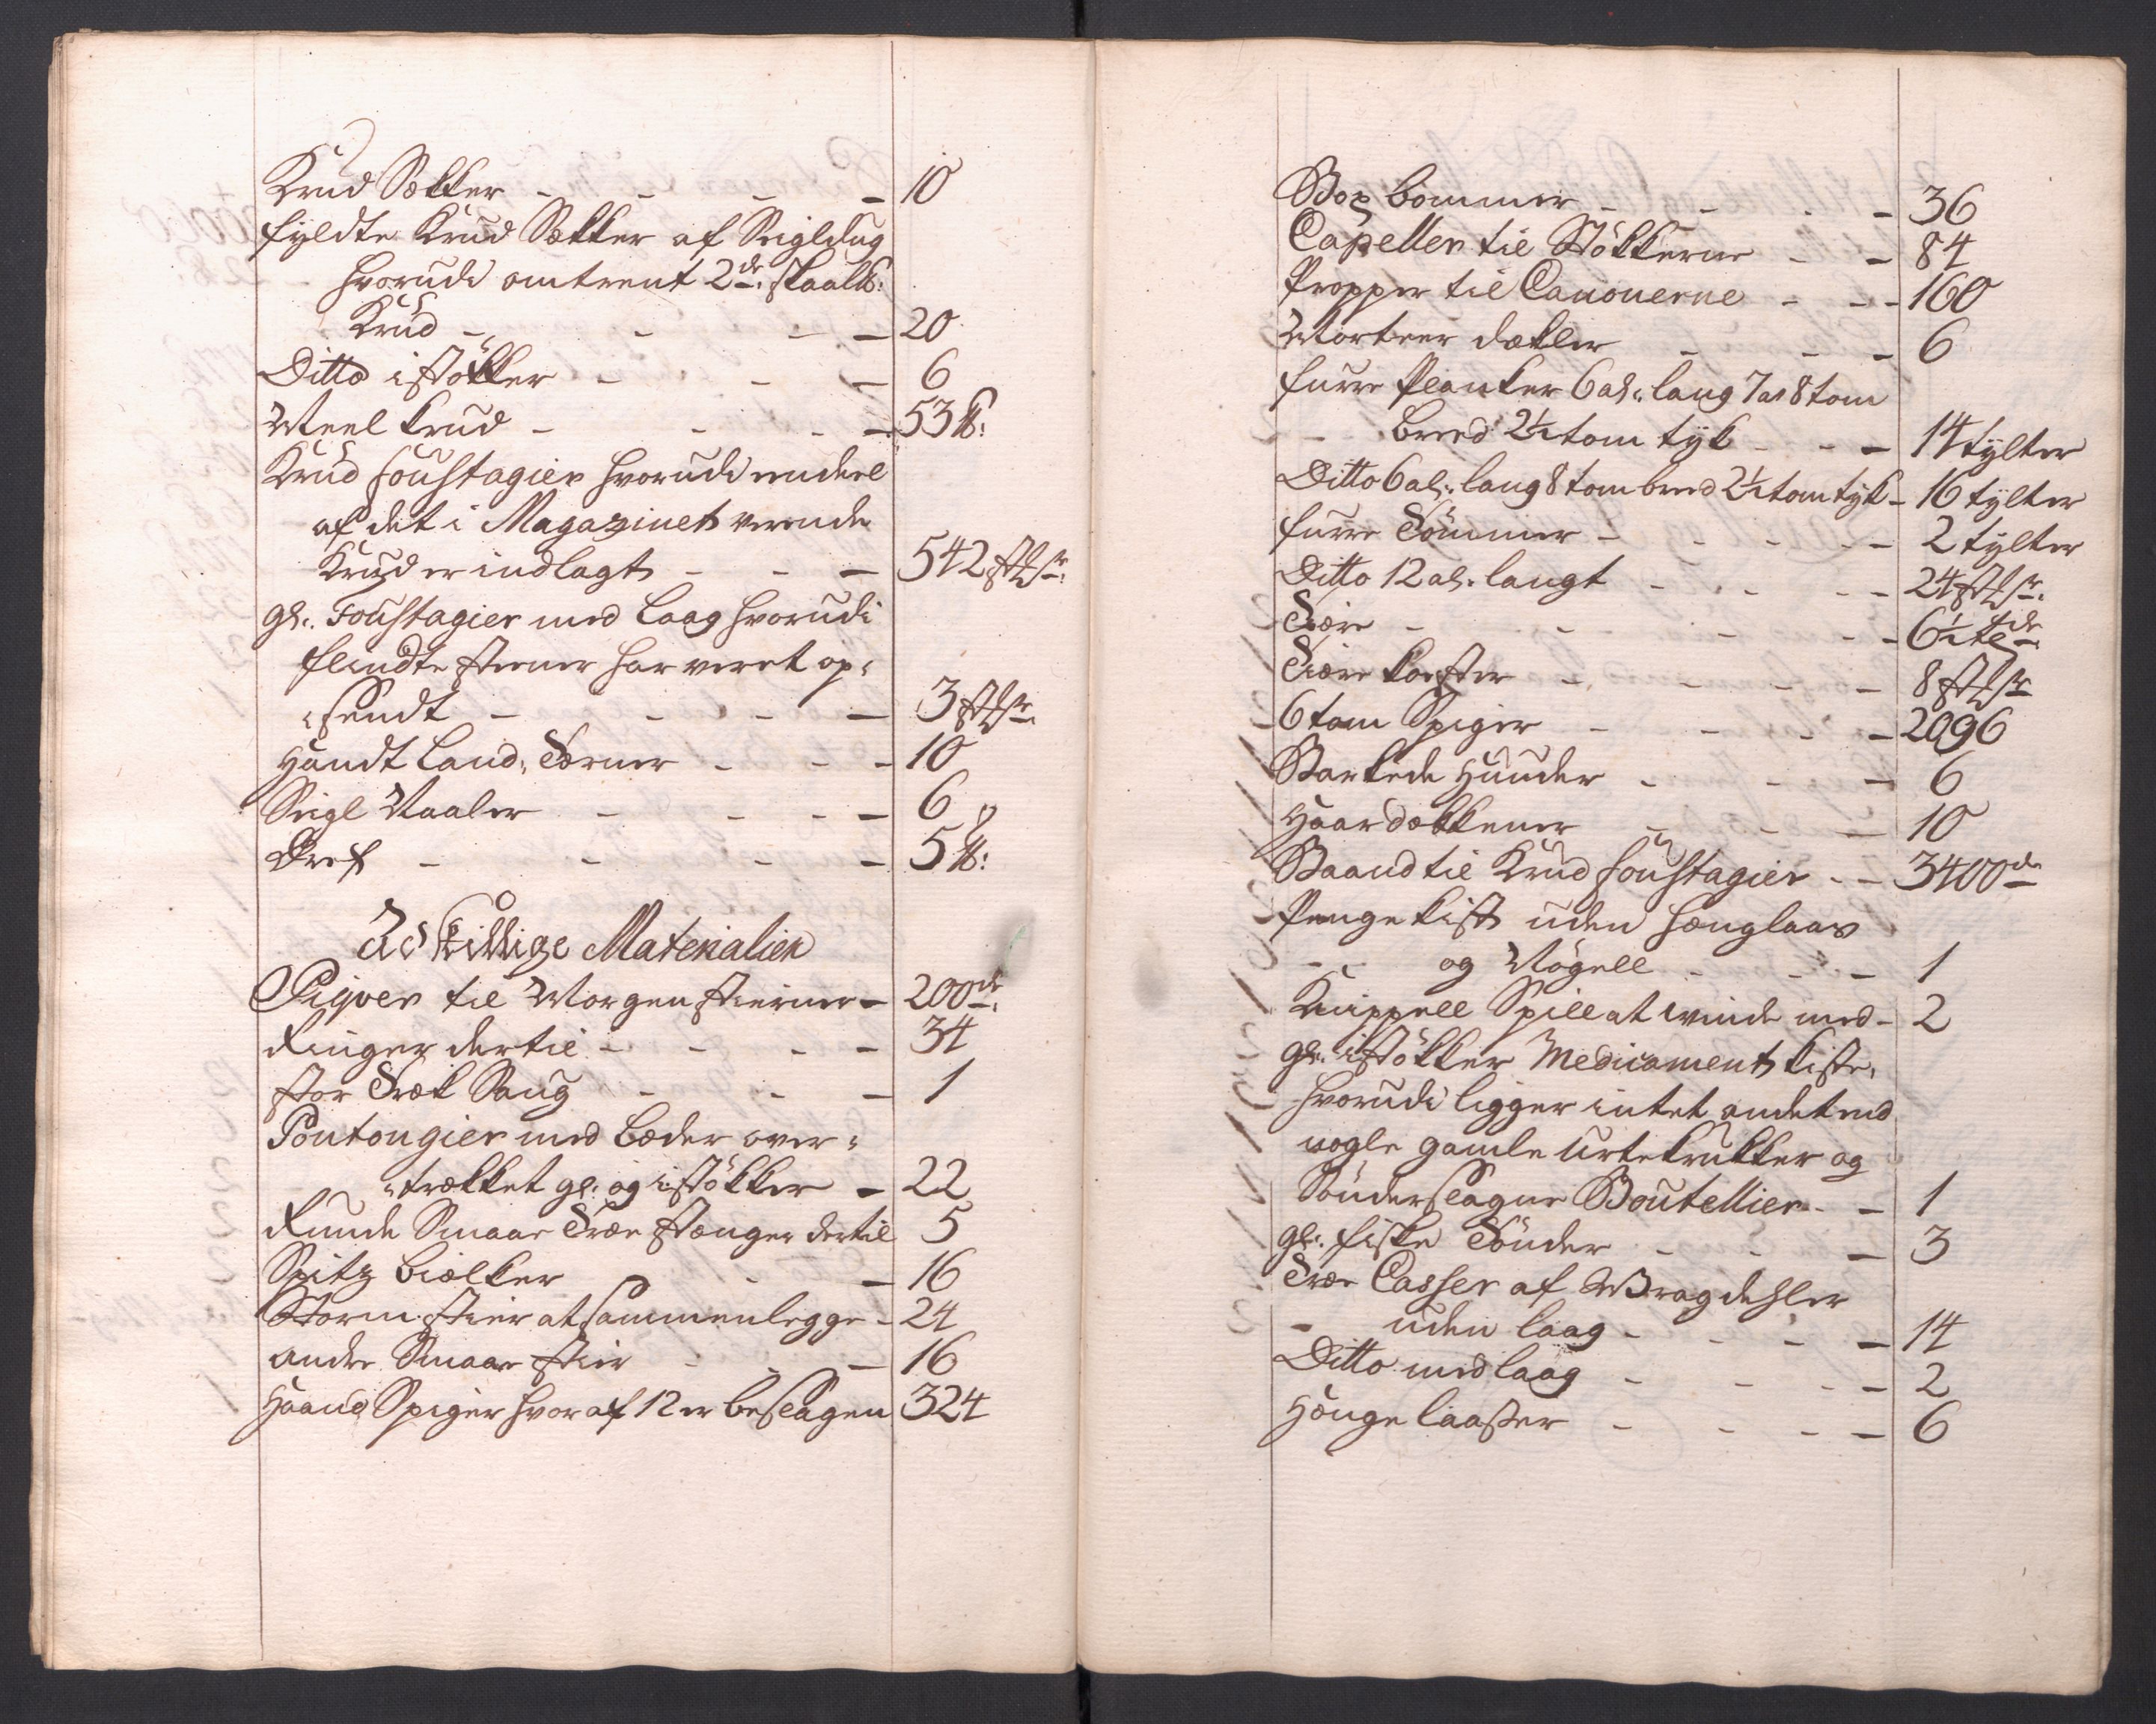 Krud Sækker - - - - 10
fyldte Krud Sækker af Seigldug
hvorudi omtrent 2de skaal ℔:
Krud - - - - 20
Ditto i støkker - - - 6
Meel krud - - - - 53 ℔:
Krud foustagier hvorudi endeel
af det i Magazinet verende
Krud er indlagt - - - 542 stkr:
gl: Foustagier med Laag hvorudi
flindte steener har veret op-
sendt - - - - 3 stkr:
Handt Land, Terner - - - 10
Seigl Naaler - - - - 6
Dref - - - - 5 ℔:
Adskillige Materialier
Pigver til Morgenstierner - 200de:
Ringer dertil - - - - 34
stor Træk Saug - - - 1
Pontongier med Læder over-
trækket gl: og i støkker - 22
Runde Smaae Træe stænger dertil 5
Spitz bielker - - 16
Storm stier at sammenlegge - 24
andre Smaae stier - - - 16
Haand Spiger hvoraf 12 er beslagen 324
Bog bommer - - - - 36
Capeller til Støkkerne - - 84
Propper til Canonerne - - - 160
Morteer dækler - - - 6
furre Planker 6 al: lang 7 as 8 tom
breed 2½ tom tyk - - - 14 tylter
Ditto 6 al: lang 8 tom breed 2½ tom tyk - 16 tylter
furre Tømmer - - - - - 2 tylter
Ditto 12 al: langt - - - - 24 stkr:
Tiære - - - - - 6½ tde
Tiære koster - - - - - 8 stkr
6 tom Spiger - - - - 2096
Barkede Huuder - - - 6
Haardækkener - - - 10
Baand til Krud foustagier - - 3400de
Penge kist uden hænglaas
og Nøgell - - - 1
Knippell Spill at winde med - 2
gl: i støkker Medicament kiste,
hvorudi ligger intet andet end
nogle gamle Urtekrukker og
Sønderslagne Boutellier - - 1
gl: fiske Tønder - - - 3
Træe Casser af Wragdehler
uden laag - - - - 14
Ditto med laag - - - - 2
Hænge laaser - - - - 6